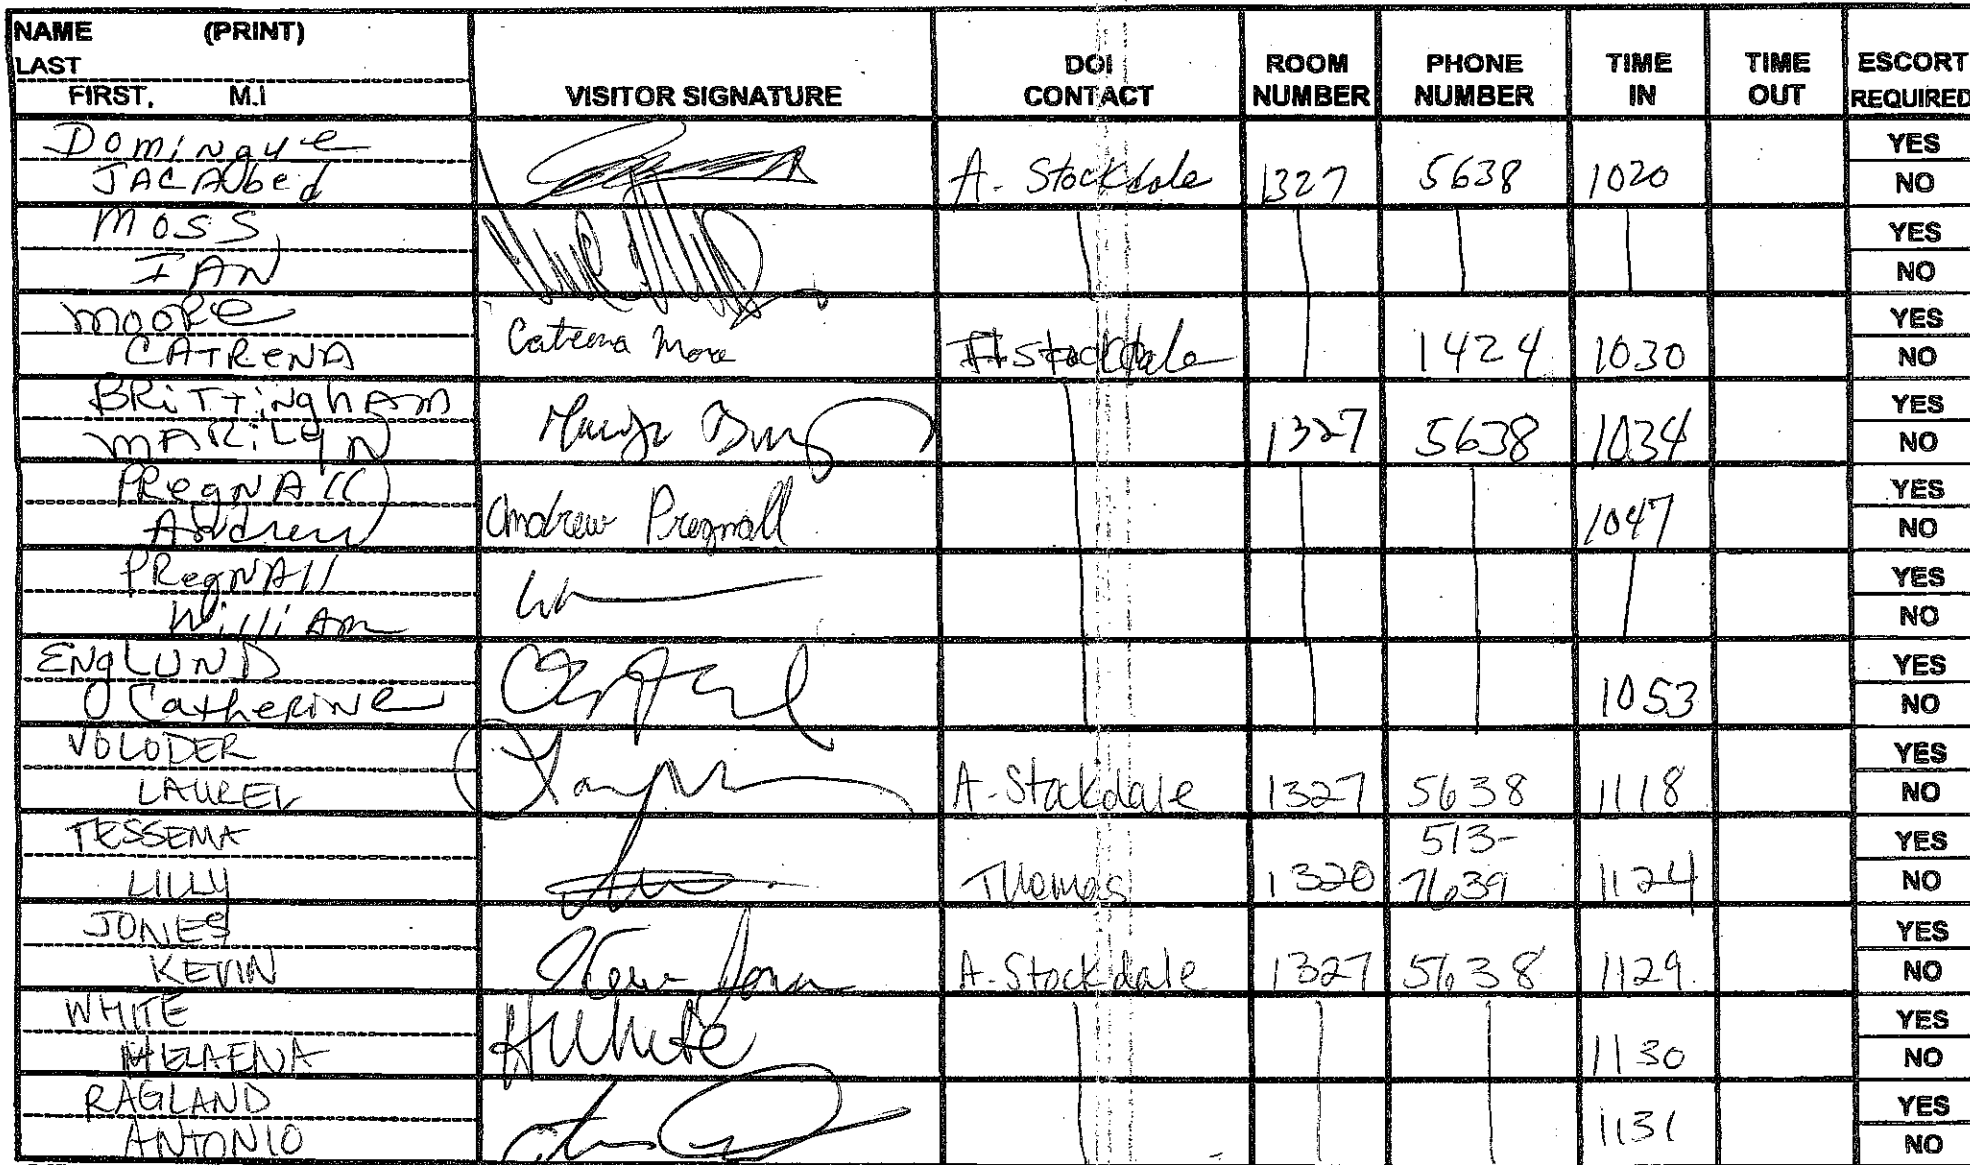 NAME (PRINT)
LAST
FIRST, M.I
VISITOR SIGNATURE
DOI CONTACT
ROOM NUMBER
PHONE NUMBER
TIME IN
TIME OUT
ESCORT REQUIRED
Dominque
A. Stockdale 1327 5638 1020 YES NO
MOSS
IAN
YES NO
MOORE
CATRENA
Catrena Moore
A. Stockdale 1424 1030 YES NO
BRiTTiNghAm
MARiLyN
1327 5638 1034 YES NO
PRegNAll
Andrew
Andrew Pregnall
1047 YES NO
PRegNAll
WilliAm
YES NO
ENgLUND
CatheRiNe
1053 YES NO
VOLODER
LAUREL
A. Stockdale 1327 5638 1118 YES NO
TESSEMA
LILLY
Thomas 1320 513-7639 1124 YES NO
JONES
KEVIN
A. Stockdale 1327 5638 1129 YES NO
WHITE
White
1130 YES NO
RAGLAND
ANTONIO
1131 YES NO